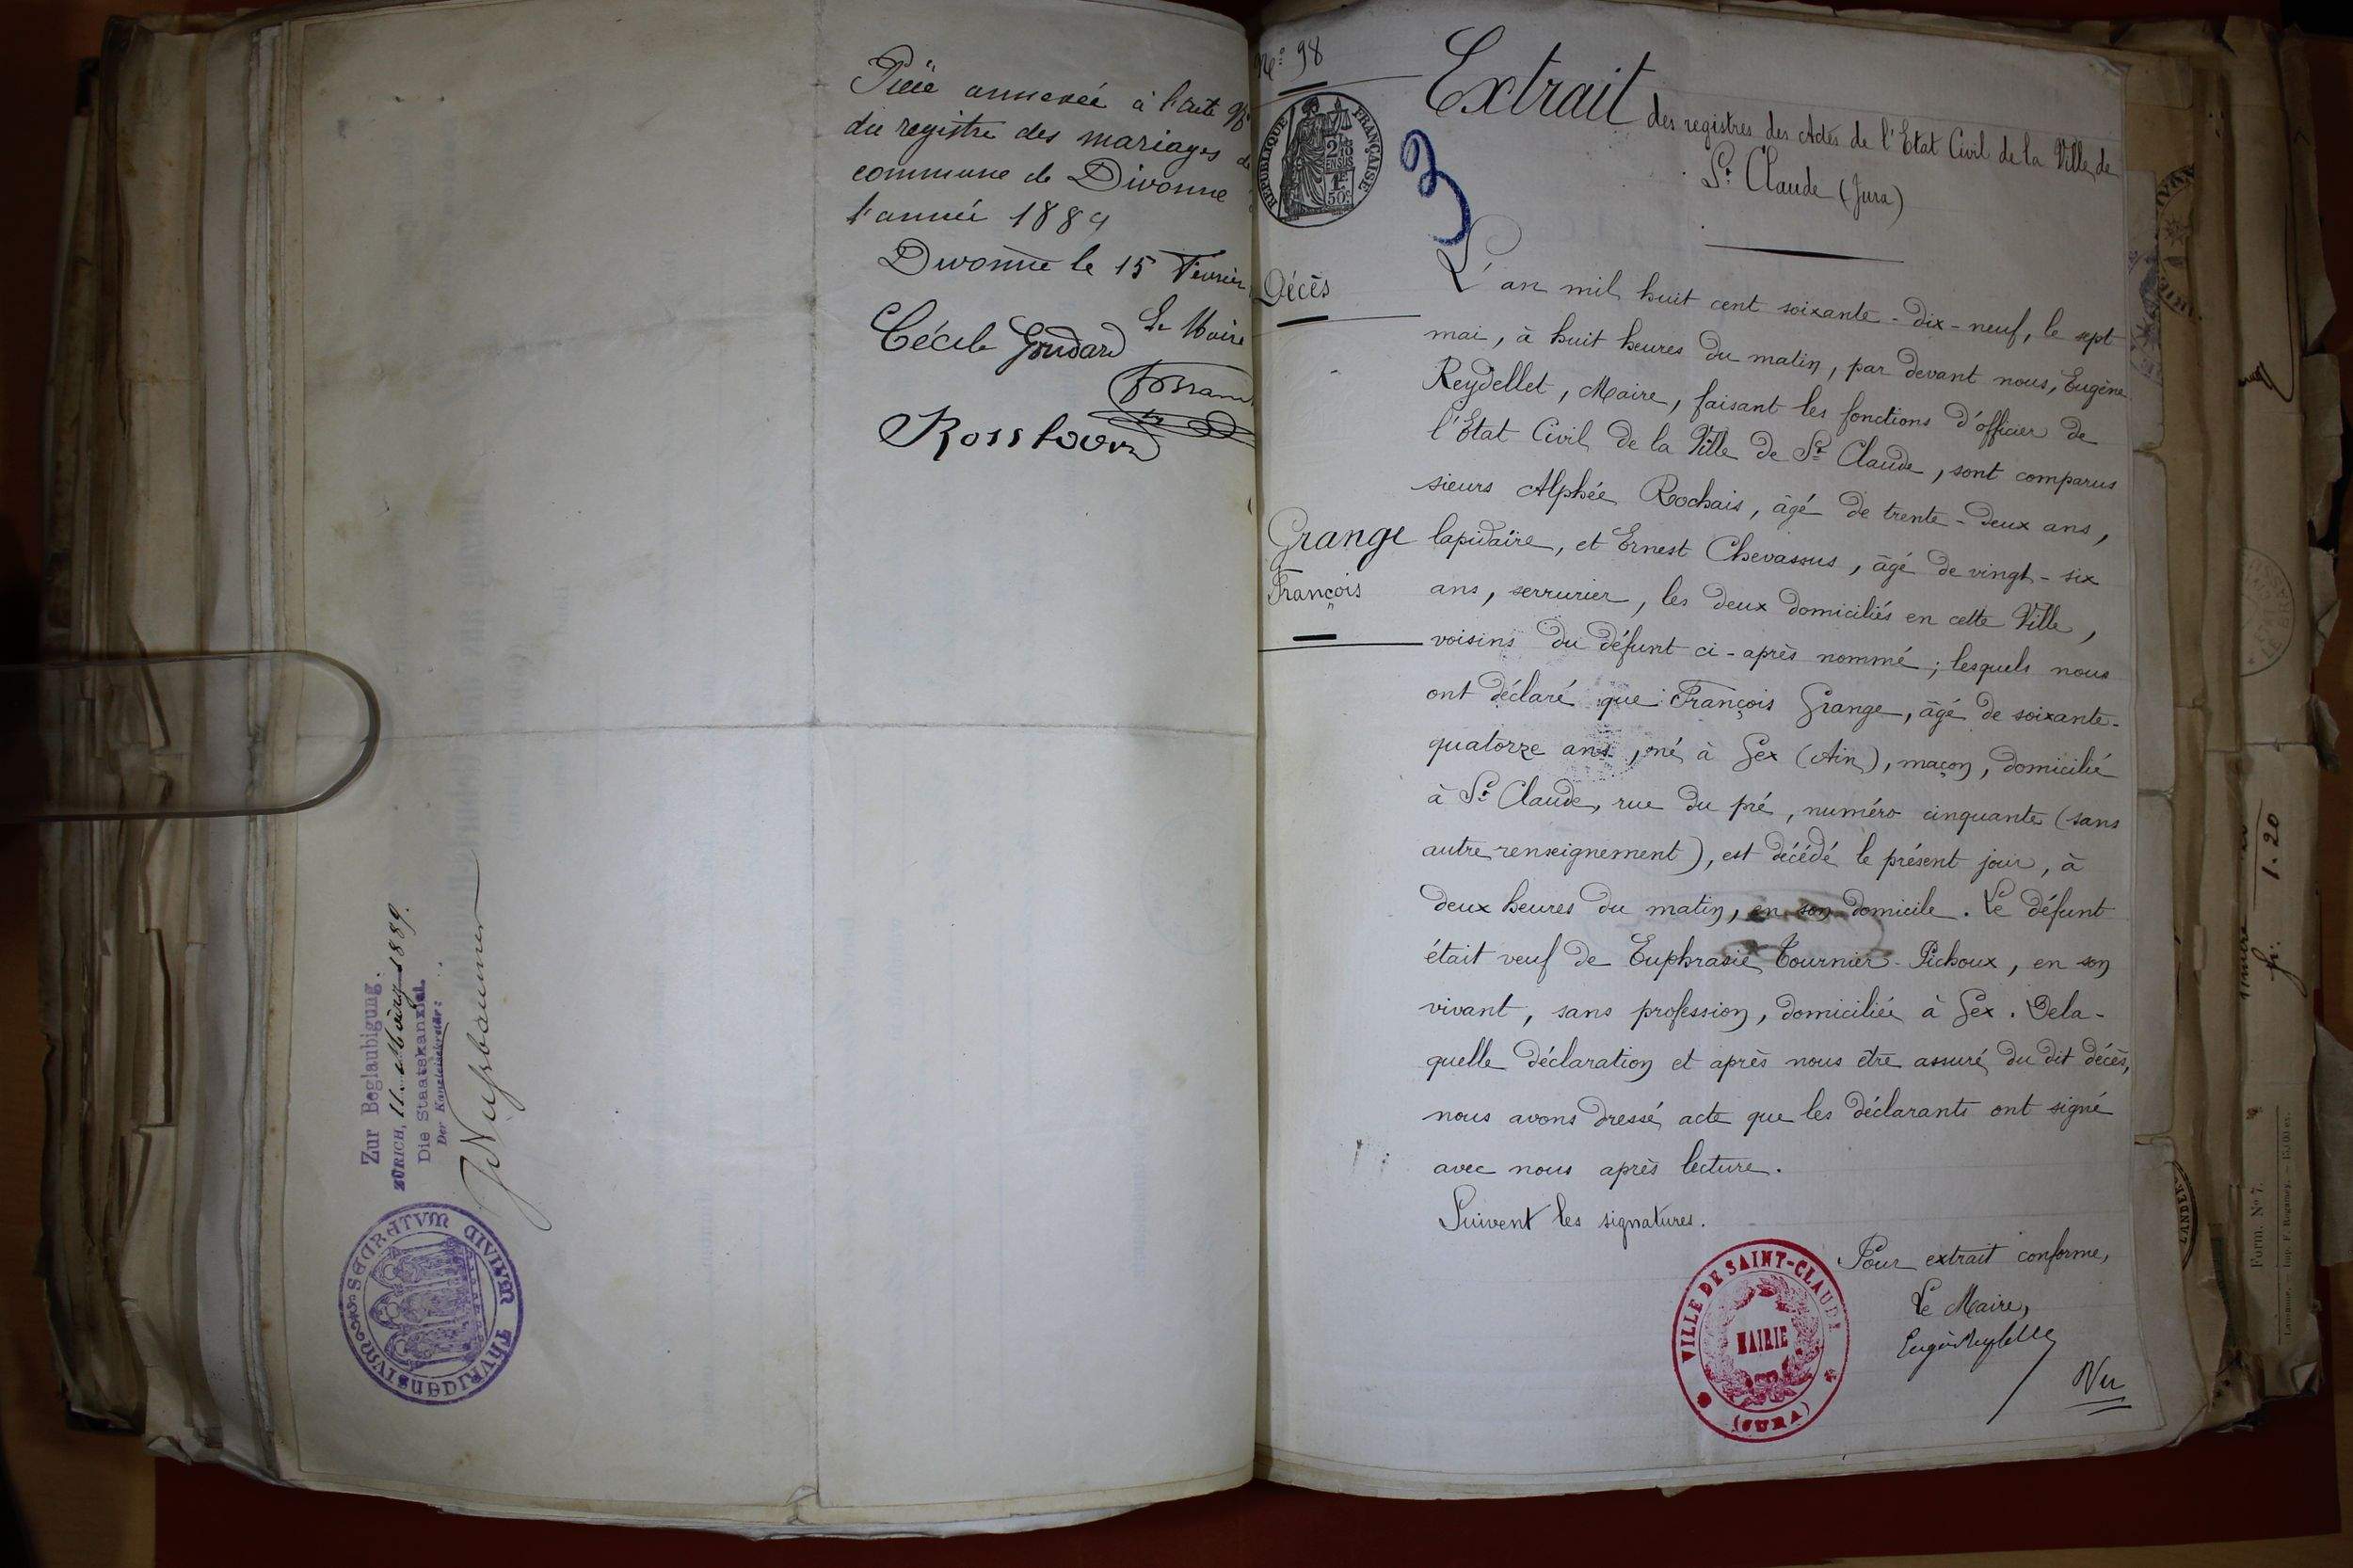 Pièce annexée à l'acte N°
du registre des mariages de
commune de Divonne
l'année 1889
Divonne le 15 Février
Le Maire
Cécile Goudard
Zur Beglaubigung.
ZÜRICH, 11. März 1889.
Die Staatskanzlei.
Der Kanzleisekretär:
J. Nussbaumer
SECRETVM CIVIVM THVRICENSIVM
N° 98
RÉPUBLIQUE FRANÇAISE
2/10 EN SUS
1F 50c
3
Extrait des registres des Actes de l'Etat Civil de la Ville de
St Claude (Jura)
Décès
L'an mil huit cent soixante-dix-neuf, le sept
mai, à huit heures du matin, par devant nous, Eugène
Reydellet, Maire, faisant les fonctions d'officier de
l'Etat Civil de la Ville de St Claude, sont comparus
sieurs Alphée Rochais, âgé de trente-deux ans,
Grange
François
lapidaire, et Ernest Chevassus, âgé de vingt-six
ans, serrurier, les deux domiciliés en cette Ville,
voisins du défunt ci-après nommé; lesquels nous
ont déclaré que François Grange, âgé de soixante-
quatorze ans, né à Gex (Ain), maçon, domicilié
à St Claude, rue du pré, numéro cinquante (sans
autre renseignement), est décédé le présent jour, à
deux heures du matin, en son domicile. Le défunt
était veuf de Euphrasie Tournier-Pichoux, en son
vivant, sans profession, domiciliée à Gex. Dela-
quelle déclaration et après nous être assuré du dit décès,
nous avons dressé acte que les déclarants ont signé
avec nous après lecture.
Suivent les signatures.
Pour extrait conforme,
Le Maire,
VILLE DE SAINT-CLAUDE
MAIRIE
(JURA)
Vu
fr. 1.20
Form. N° 7.